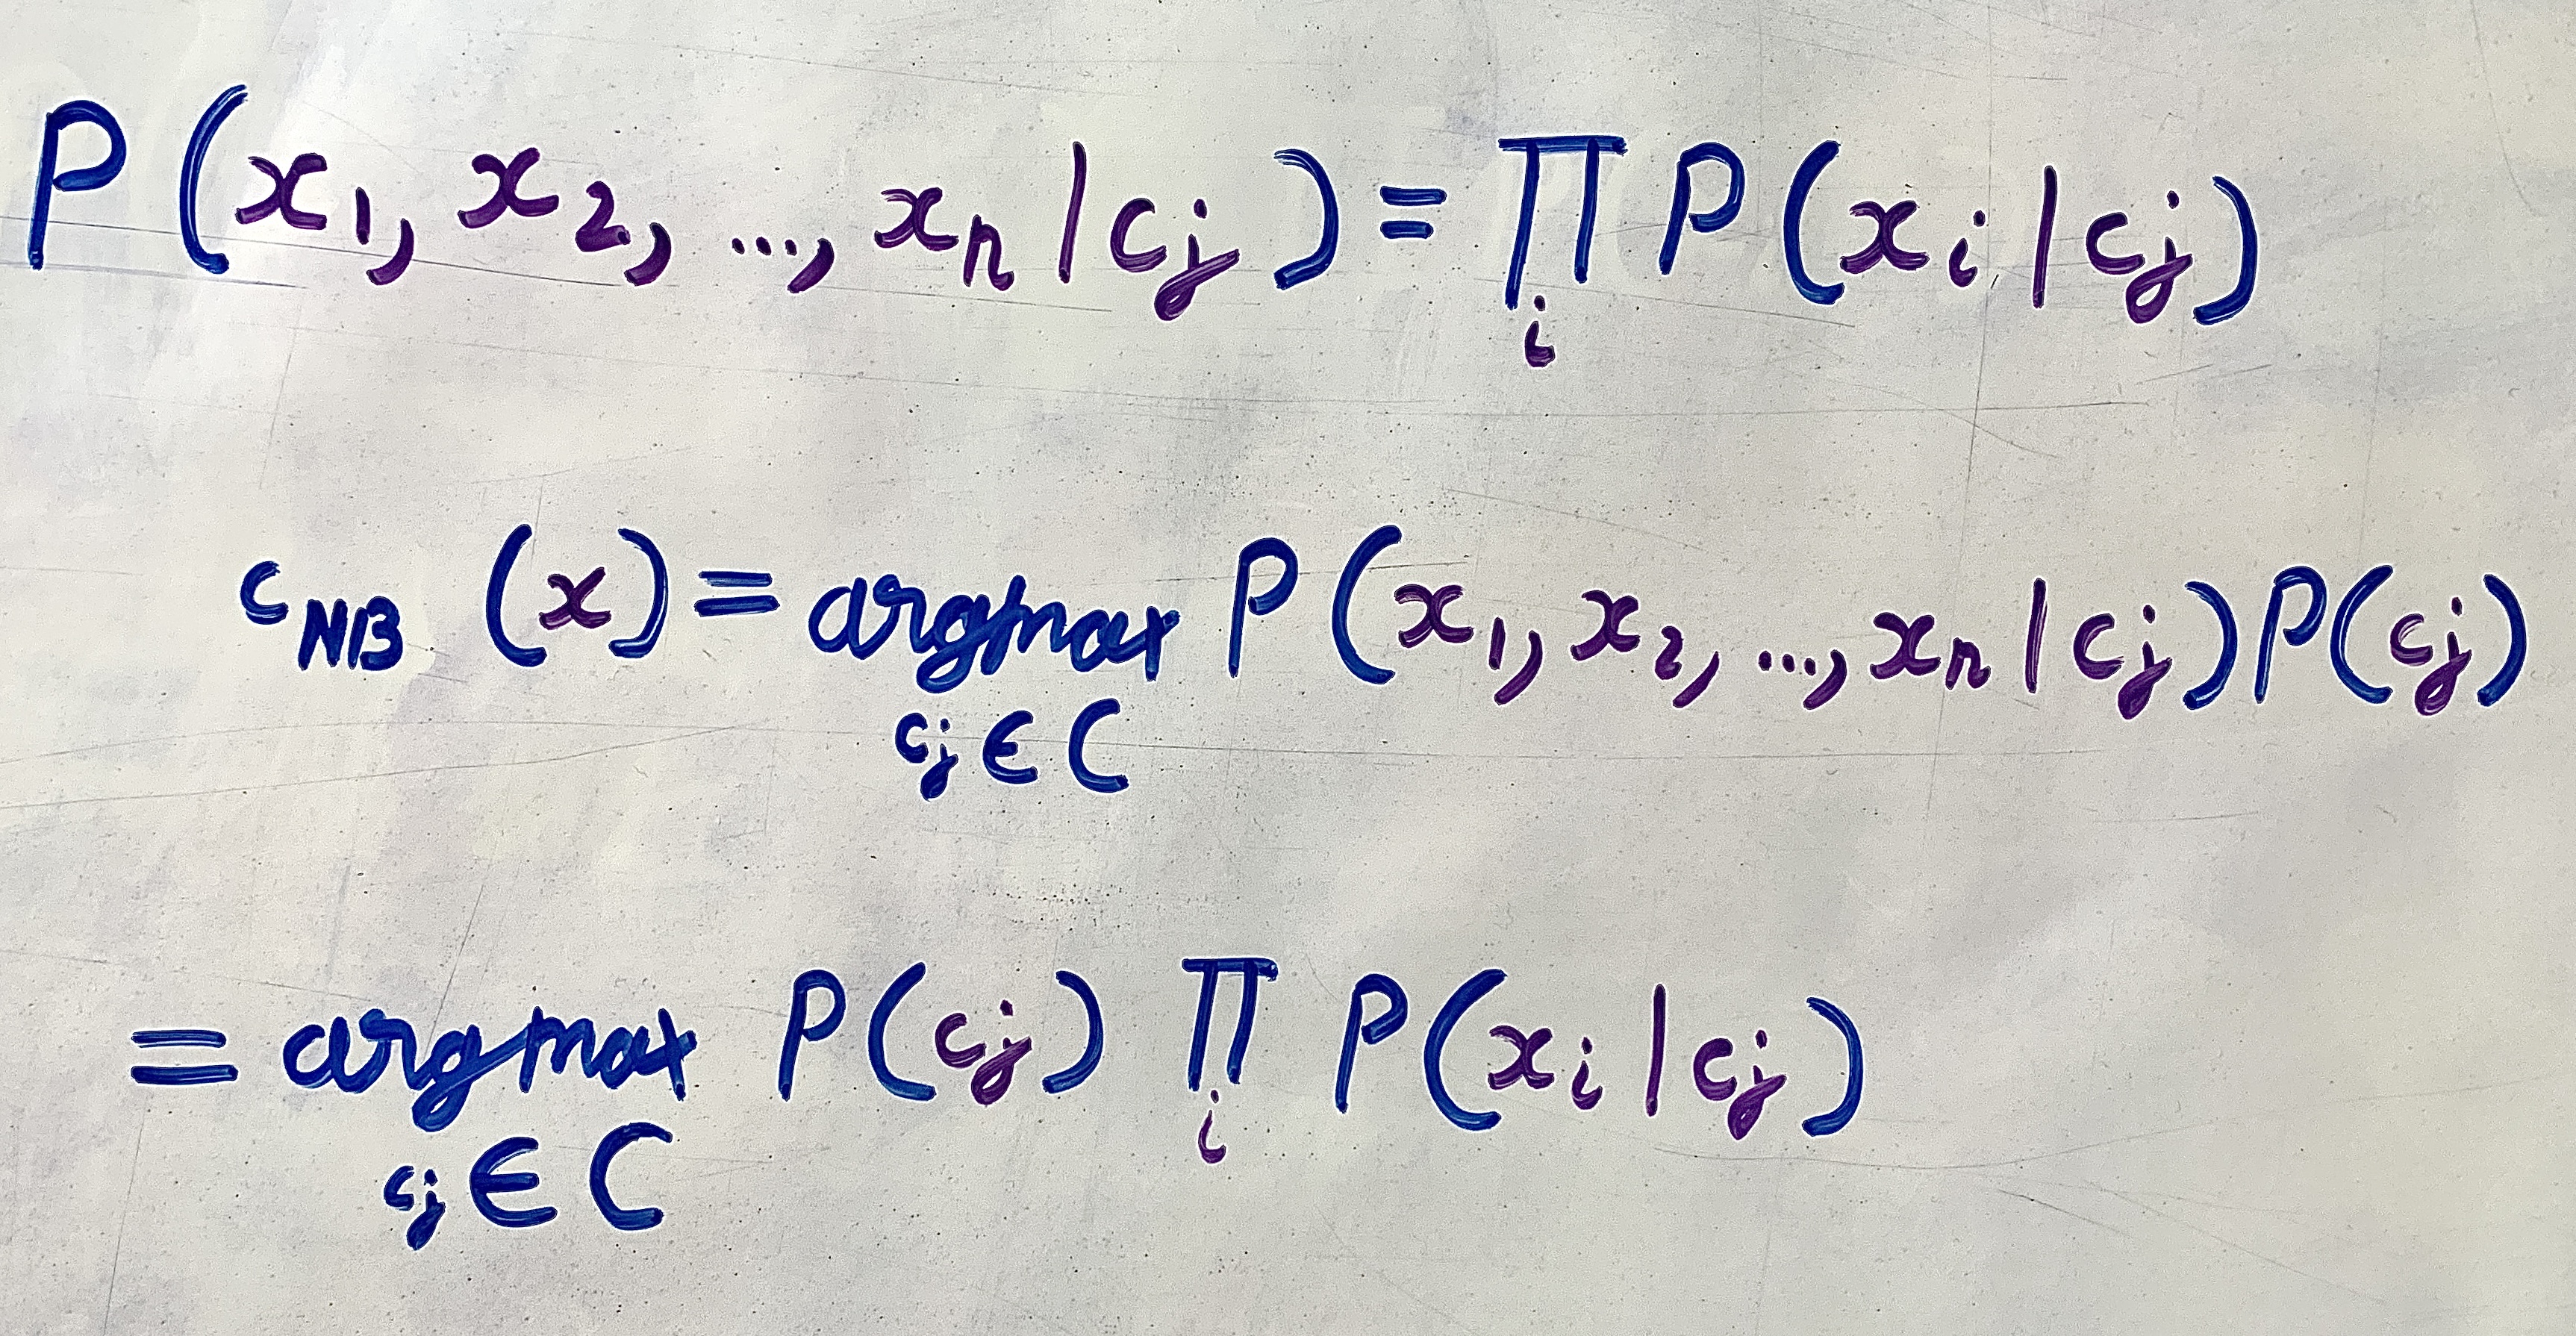 P(x₁, x₂, ..., xₙ | cⱼ) = ∏ P(xᵢ | cⱼ)
i
c_NB (x) = argmax P(x₁, x₂, ..., xₙ | cⱼ) P(cⱼ)
cⱼ ∈ C
= argmax P(cⱼ) ∏ P(xᵢ | cⱼ)
cⱼ ∈ C i